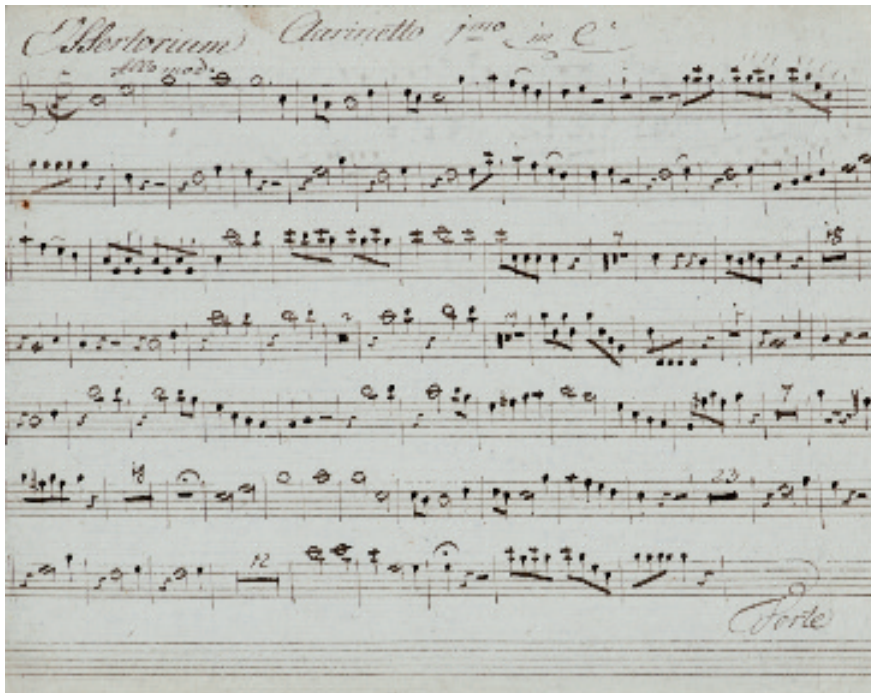 Offertorium Clarinetto jmo in C:
All̊o mod:
7
18
2
7
18
23
12
Forte